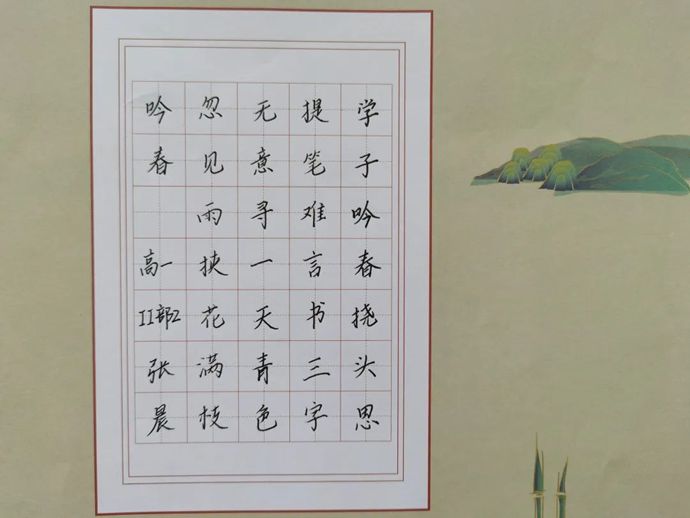 学子吟春挠头思
提笔难言书三字
无意寻一天青色
忽见雨挟花满枝
吟春
高一
II部2
张晨